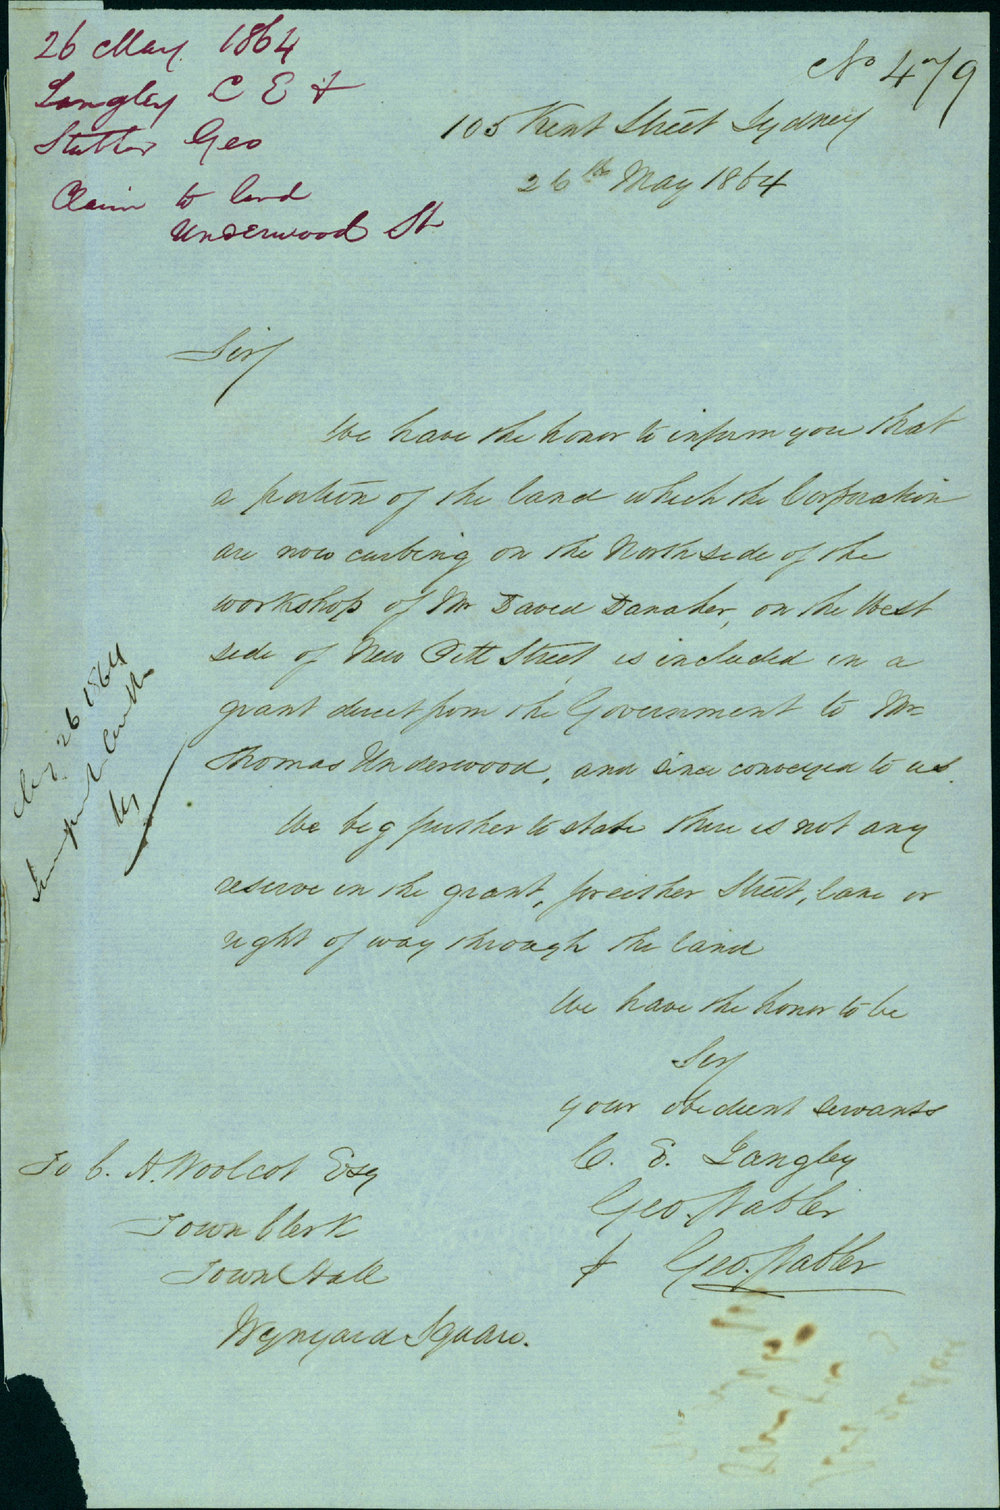 26 May 1864
Langley C E &
Stabler Geo
Claim to land
Underwood St
No 479
105 Kent Street Sydney
26th May 1864
Sir
We have the honor to inform you that
a portion of the land which the Corporation
are now curbing on the North side of the
workshop of Mr David Danaher, on the West
side of New Pitt Street is included in a
grant direct from the Government to Mr
Thomas Underwood, and since conveyed to us.
We beg further to state there is not any
reserve in the grant, for either Street, lane or
right of way through the land
We have the honor to be
Sir
your obedient servants
C. E. Langley
Geo. Stabler
& Geo. Stabler
To C. H. Woolcot Esq
Town Clerk
Town Hall
Wynyard Square.
May 26 1864